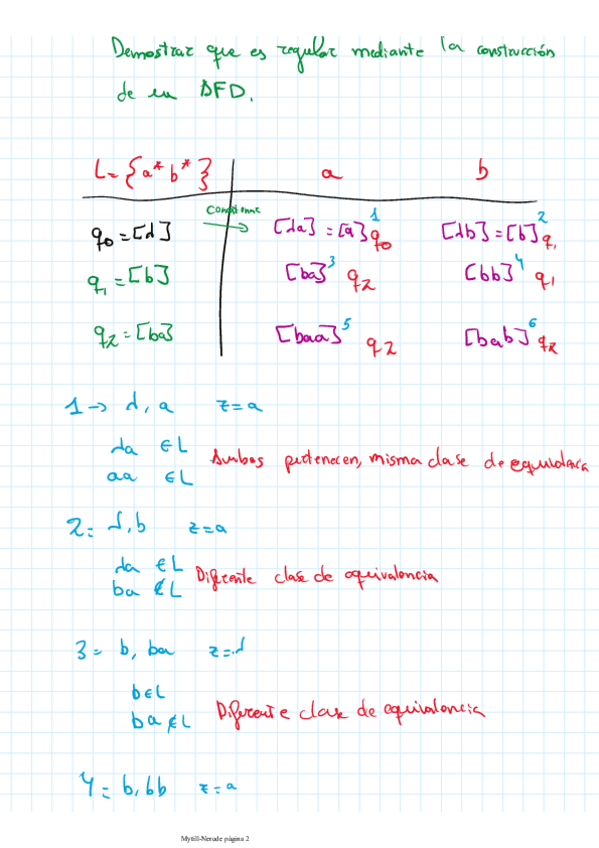 Demostrar que es regular mediante la construcción
de un DFD.
L={a*b*} a b
q₀=[λ] [λa]=[a]¹q₀ [λb]=[b]²q₁
q₁=[b] [ba]³ q₂ [bb]⁴ q₁
q₂=[ba] [baa]⁵ q₂ [bab]⁶ q₂
1→ λ, a z=a
λa ∈L
Ambos pertenecen, misma clase de equivalencia
aa ∈L
2= λ, b z=a
λa ∈L
Diferente clase de equivalencia
ba ∉L
3= b, ba z=λ
b∈L
Diferente clase de equivalencia
ba∉L
4= b, bb z=a
Myhill-Nerode página 2